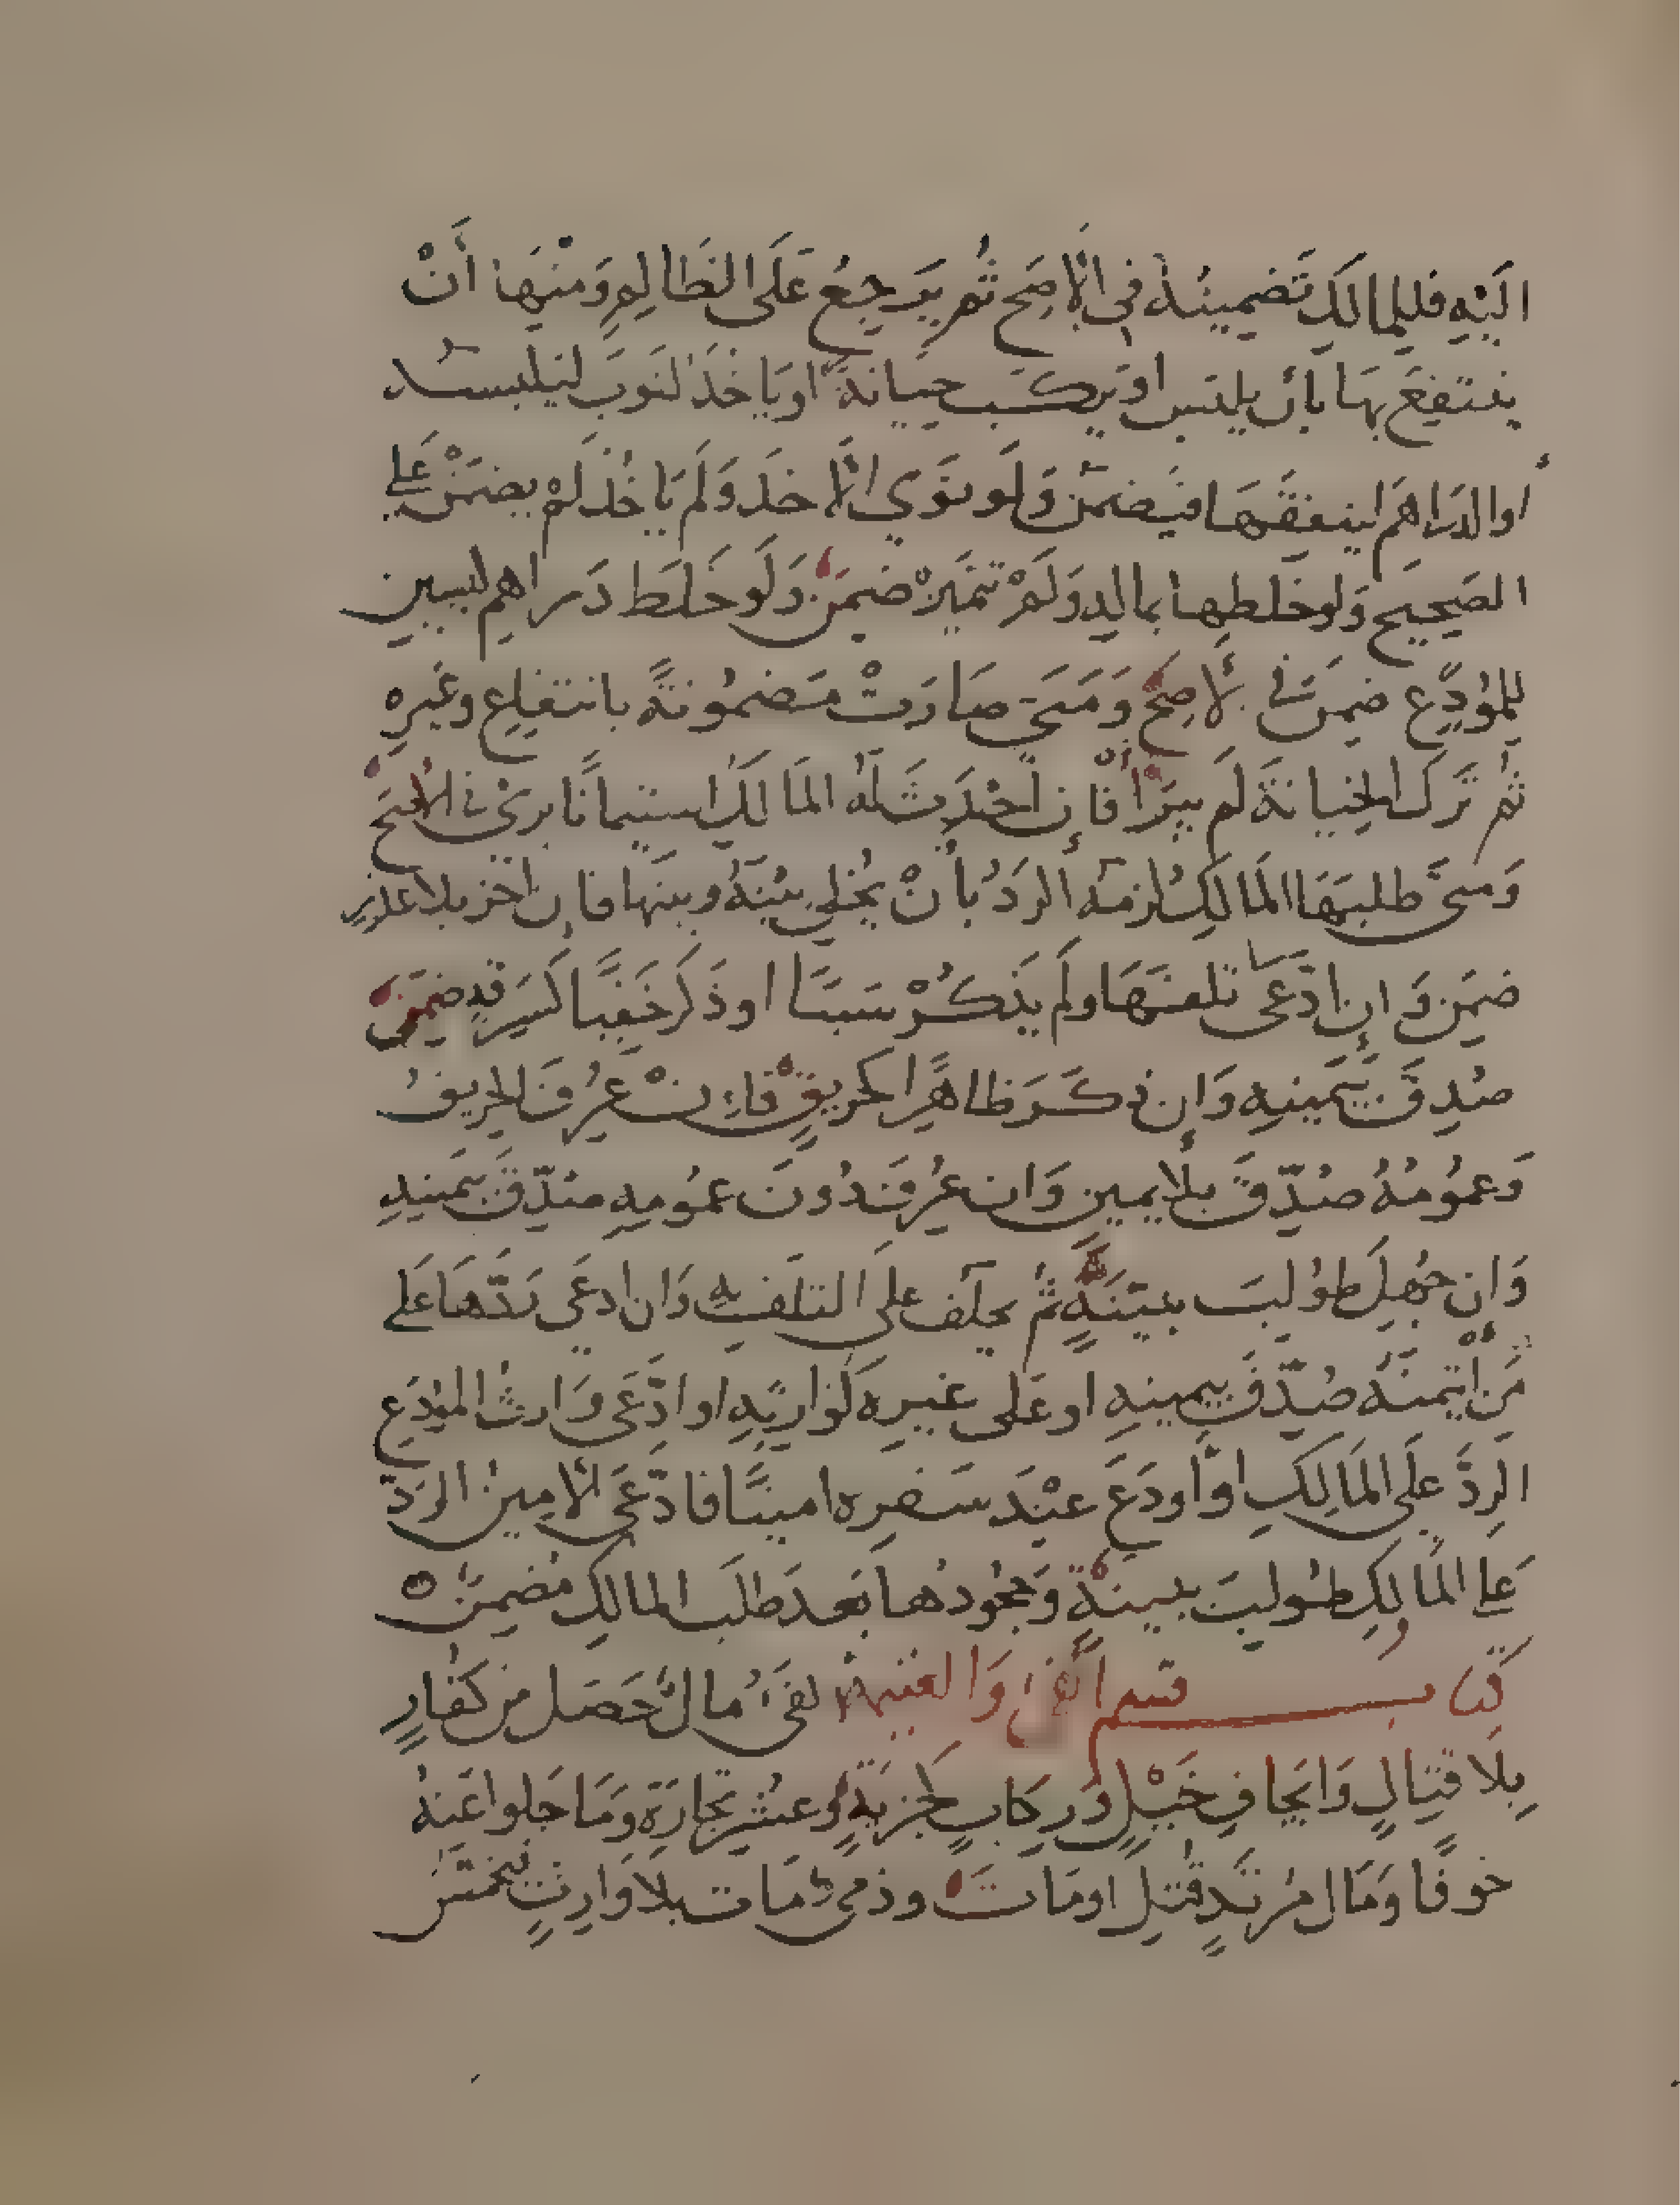 اليه فللمالك تضمينه في الأصح ثم يرجع على الظالم ومنها أن
ينتفع بها بأن يلبس او يركب خيانة او ياخذ الثوب ليلبسه
أو الدراهم لينفقها فيضمن ولو نوى الأخذ ولم ياخذ لم يضمن على
الصحيح ولو خلطها بماله ولم تتميز ضمن ولو خلط دراهم كيسين
للمودع ضمن في الأصح ومتى صارت مضمونة بانتفاع وغيره
ثم ترك الخيانة لم يبرأ فإن أحدث له المالك استيمانا برئ في الأصح
ومتى طلبها المالك لزمه الرد بأن يخلي بينه وبينها فإن أخر بلا عذر
ضمن وإن ادعى تلفها ولم يذكر سببا او ذكر خفيا كسرقة ضمن
صدق بيمينه وان ذكر ظاهرا كحريق فإن عرف الحريق
وعمومه صدق بلا يمين وان عرف دون عمومه صدق بيمينه
وان جهل طولب ببينة ثم يحلف على التلف به وان ادعى ردها على
من أيتمنه صدق بيمينه او على غيره كوارثه او ادعى وارث المودع
الرد على المالك او أودع عند سفره امينا فادعى الأمين الرد
على المالك طولب ببينة وجحودها بعد طلب المالك مضمن ه
كتاب قسم الفئ والغنيمة الفئ مال حصل من كفار
بلا قتال وايجاف خيل وركاب كجزية وعشر تجارة وما جلوا عنه
خوفا ومال مرتد قتل او مات وذمي مات بلا وارث فيخمس